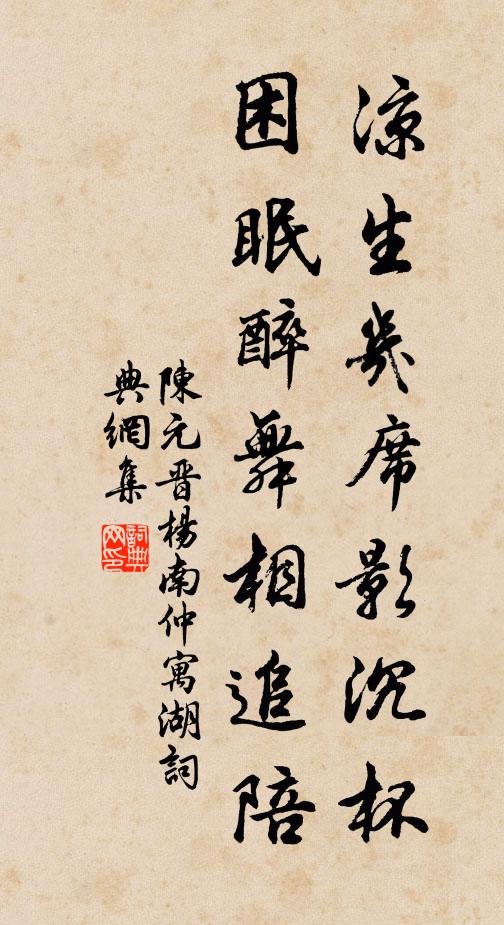 凉生幾席影沉杯
困眠醉舞相追陪
陳元晋楊南仲寓湖詞
典網集
詞典網印